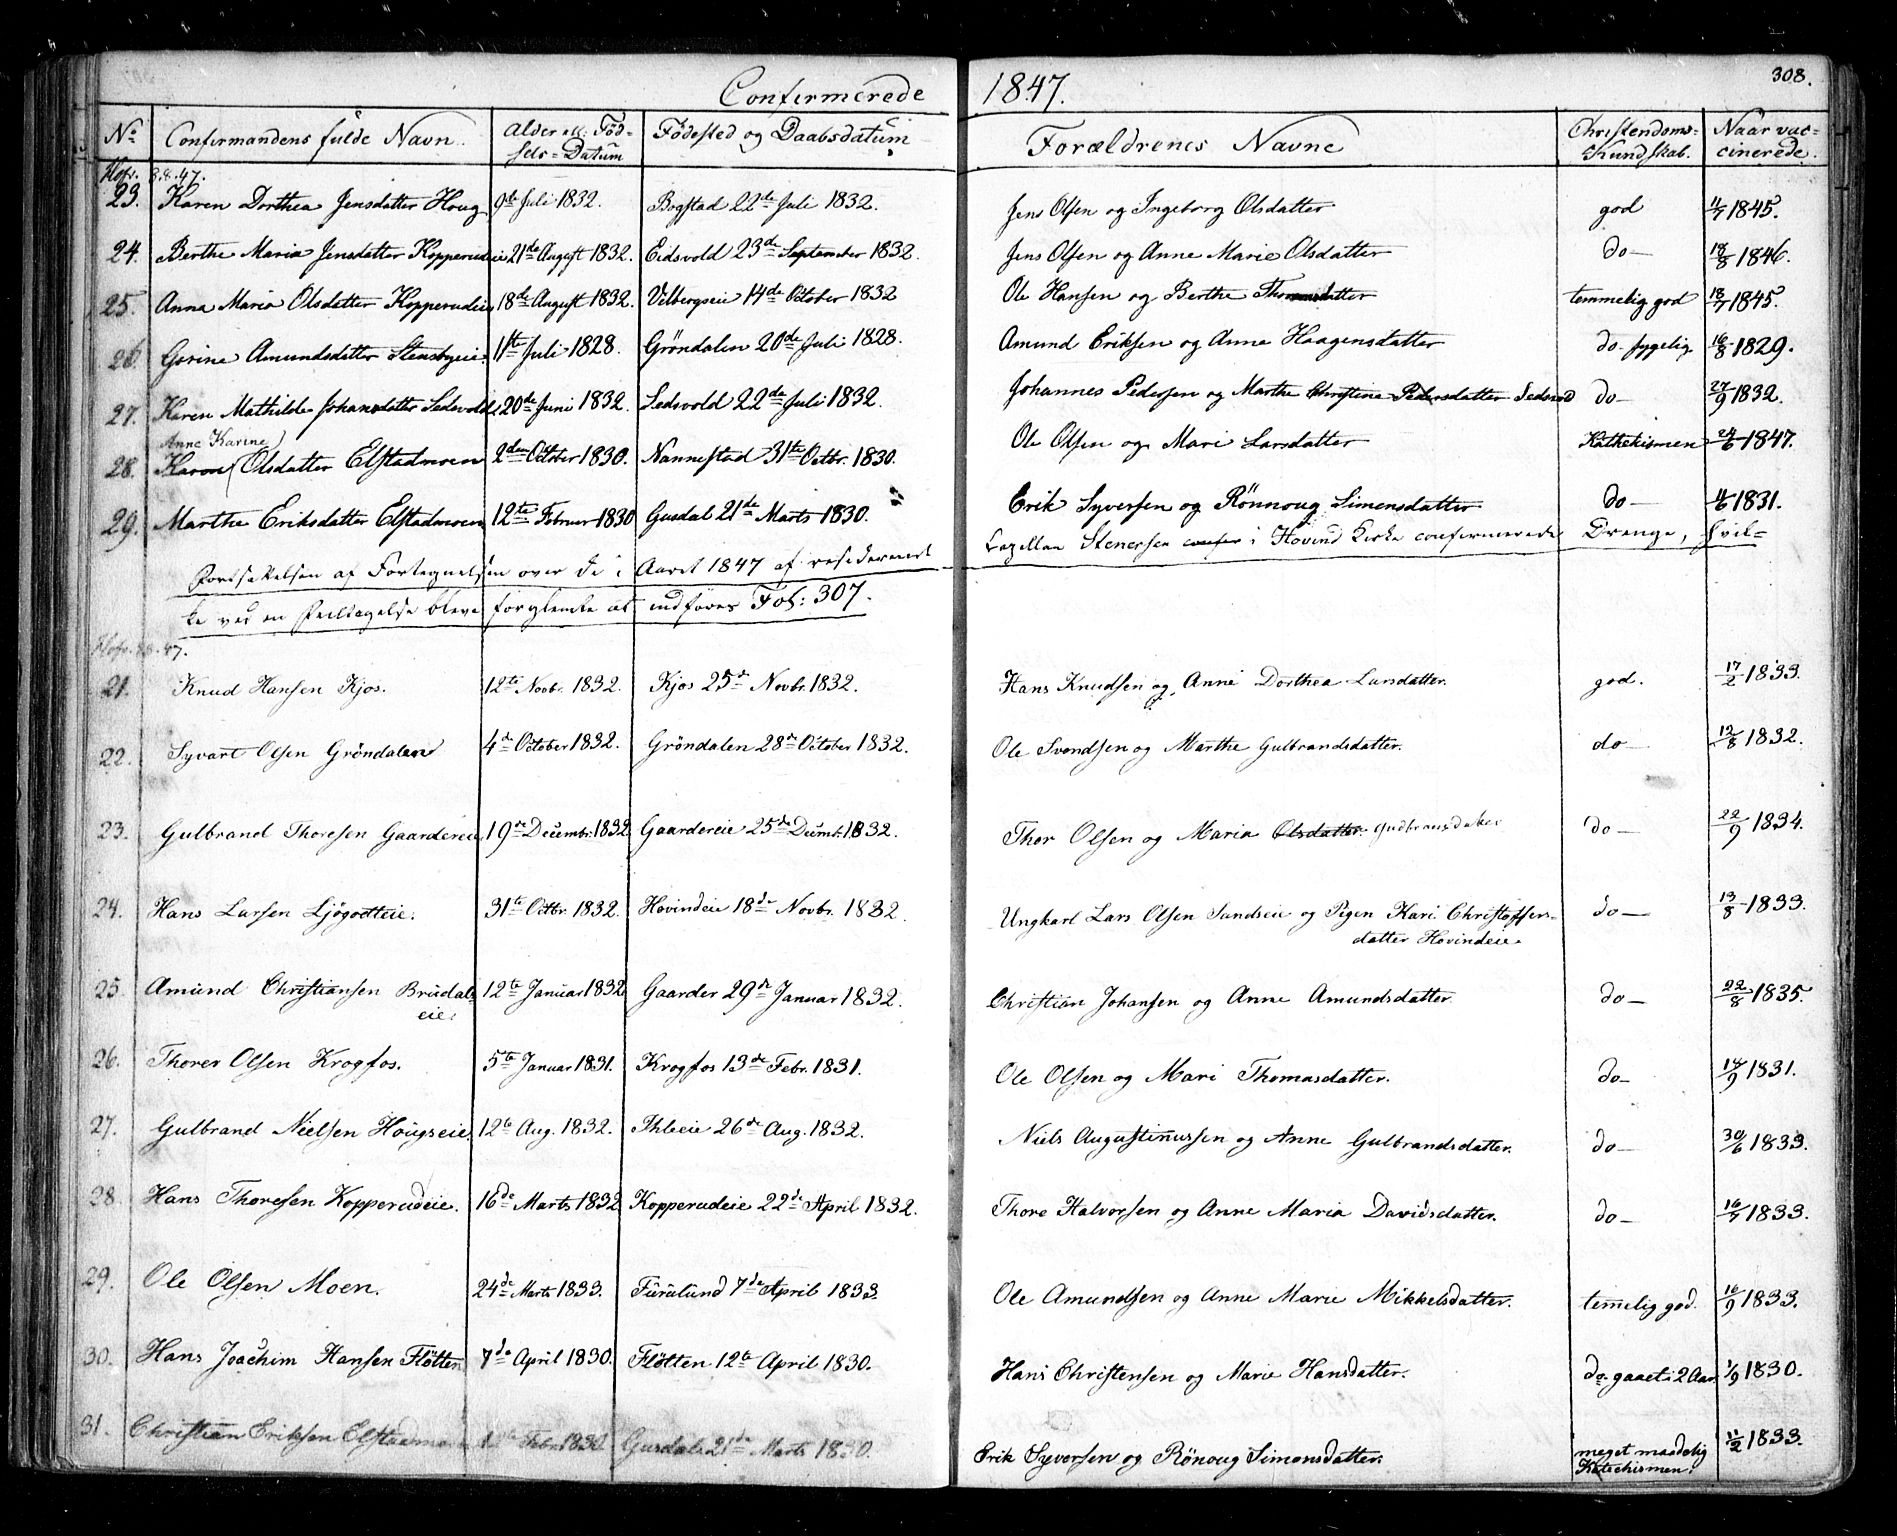 308.
Confirmerede 1847.
No Confirmandens fulde Navn. Alder ell. Fød- Fødested og Daabsdatum Forældrenes Navne Christendoms- Naar vac-
sels=Datum Kundskab. cinerede.
23. Karen Dorthea Jensdatter Houg 9de Juli 1832. Bogstad 22de Juli 1832. Jens Olsen og Ingeborg Olsdatter god 4/7 1845.
24. Berthe Maria Jensdatter Kopperudeie 21de August 1832. Eidsvold 23de September 1832. Jens Olsen og Anne Marie Olsdatter do— 18/8 1846.
25. Anna Maria Olsdatter Kopperudeie 18de August 1832. Vilbergseie 14de October 1832 Ole Hansen og Berthe Thomasdatter temmelig god 18/7 1845.
26 Gorine Amundsdatter Stensbyeie. 11te Juli 1828. Gröndalen 20de Juli 1828. Amund Eriksen og Anne Haagensdatter do. sygelig 16/8 1829.
27. Karen Mathilde Johansdatter Sedsvold 20de Juni 1832. Sedsvold 22de Juli 1832. Johannes Pedersen og Marthe Christine Pedersdatter do— 27/9 1832.
Anne Karine
28. Karen Olsdatter Elstadmoen 2den October 1830. Nannestad 31te Octbr. 1830. Ole Olsen og Mari Larsdatter Kathekismen 24/6 1847.
29. Marthe Eriksdatter Elstadmoen 12te Februar 1830 Gusdal 21de Marts 1830. Erik Syversen og Rönnoug Simensdatter do— 4/6 1831.
Fortsættelsen af Fortegnelsen over de i Aaret 1847 af residerende Capellan Stenersen i Hovind Kirke confirmerede Drenge, hvil-
ke ved en Feiltagelse bleve forglemte at indføres Fol: 307.
21. Knud Hansen Kjos. 12te Novbr. 1832. Kjos 25de Novbr. 1832. Hans Knudsen og Anne Dorthea Larsdatter. god. 17/2 1833.
22. Syvart Olsen Gröndalen 4de October 1832. Gröndalen 28de October 1832. Ole Svendsen og Marthe Gulbrandsdatter. do— 12/8 1832.
23. Gulbrand Thoresen Gaardereie 19de Decembr. 1832 Gaardereie 25de Decmbr. 1832. Thor Olsen og Maria Olsdatter. Gudbransdatter do— 22/9 1834.
24. Hans Larsen Ljögodtteie. 31te Octbr. 1832. Hovindeie 18de Novbr. 1832. Ungkarl Lars Olsen Sandseie og Pigen Kari Christoffers- do— 13/8 1833.
datter Hovindeie.
25. Amund Christiansen Brudal- 12te Januar 1832 Gaarder 29de Januar 1832. Christian Johansen og Anne Amundsdatter. do— 22/8 1835.
eie.
26. Thorer Olsen Krogfos. 5te Januar 1831. Krogfos 13de Febr. 1831. Ole Olsen og Mari Thomasdatter. do— 14/9 1831.
27. Gulbrand Nielsen Hougseie 12te Aug. 1832. Ihleeie 26de Aug. 1832. Niels Augustinussen og Anne Gulbrandsdatter. do— 30/6 1833.
28 Hans Thoresen Kopperudeie. 16de Marts 1832 Kopperudeie 22de April 1832. Thore Halvorsen og Anne Maria Davidsdatter. do— 16/7 1833.
29. Ole Olsen Moen. 24de Marts 1833. Furulund 7de April 1833. Ole Amundsen og Anne Marie Mikkelsdatter. temelig god. 16/9 1833.
30. Hans Joachim Hansen Flötten 7de April 1830. Flötten 12te April 1830. Hans Christensen og Marie Hansdatter. do. gaaet i 2 Aar 1/9 1830.
31. Christian Eriksen Elstadmoen 12te Febr. 1830. Gusdal 21de Marts 1830. Erik Syversen og Rönoug Simonsdatter. meget maadelig 11/2 1833.
Katechismen.